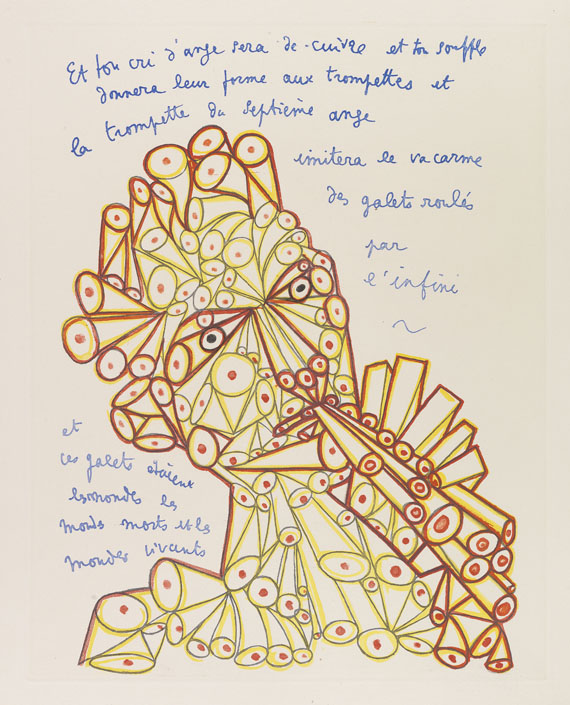 Et ton cri d'ange sera de cuivre et ton souffle
donnera leur forme aux trompettes et
la trompette du septième ange
imitera le vacarme
des galets roulés
par
l'infini
et
ces galets étaient
les mondes les
mondes morts et les
mondes vivants